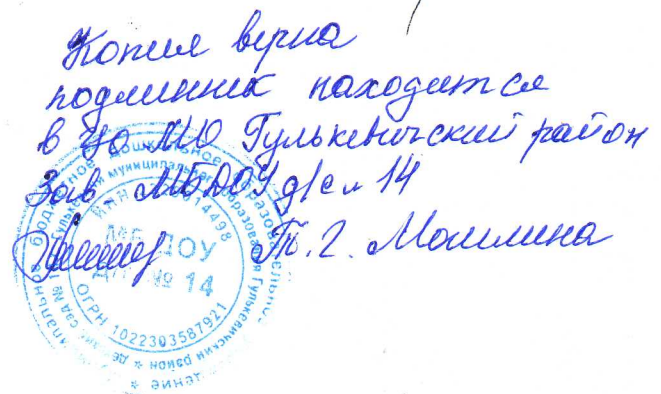 Копия верна
подлинник находится
в УО МО Гулькевичский район
Зав МБДОУ д/с № 14
Т.Г. Машлина
МБДОУ
№ 14
ОГРН 1022303587921